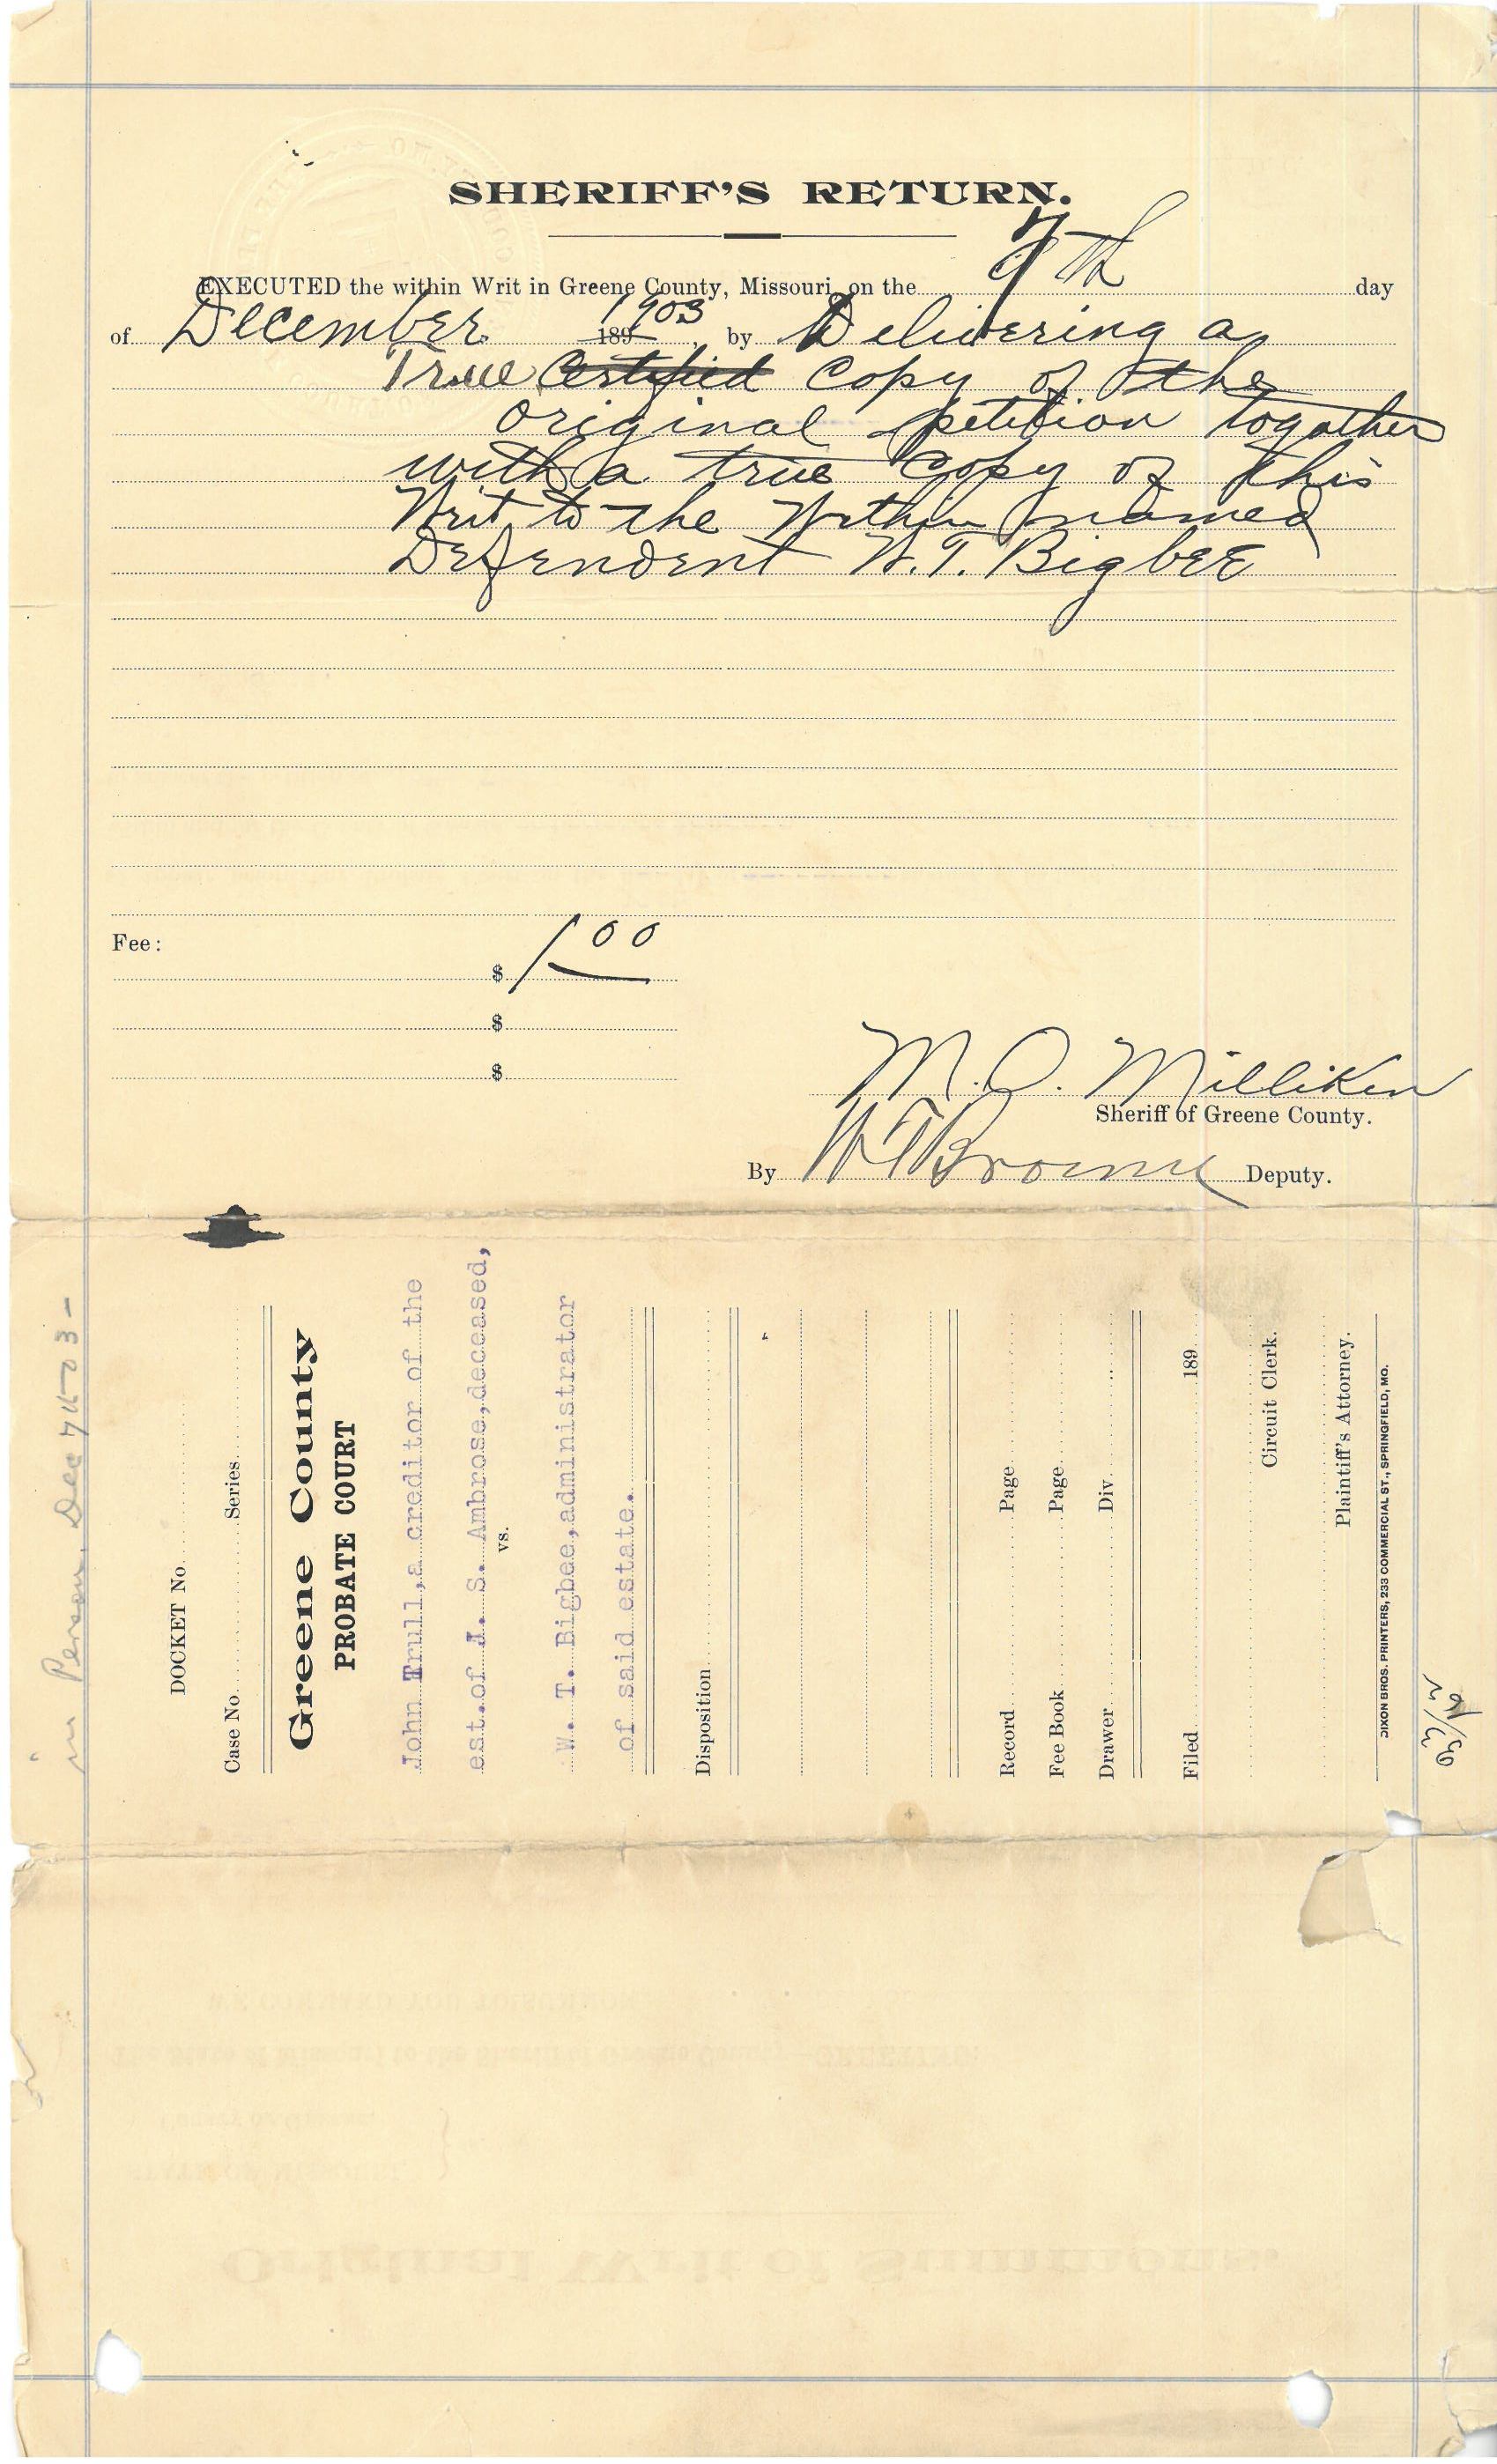 SHERIFF'S RETURN.
EXECUTED the within Writ in Greene County, Missouri, on the 7th day
of December 1903, by Delivering a
True Certified Copy of the
original petition together
with a true Copy of this
Writ to the Within named
Defendent W. T. Bigbee
Fee:
$ 1 00
$
$
M. O. Milliken
Sheriff of Greene County.
By W T Browne Deputy.
in Person. Dec 7th 03 -
DOCKET No
Case No. Series
Greene County
PROBATE COURT
John Trull, a creditor of the
est. of J. S. Ambrose, deceased,
vs.
W. T. Bigbee, administrator
of said estate.
Disposition
Record Page
Fee Book Page
Drawer Div.
Filed 189
Circuit Clerk.
Plaintiff's Attorney.
DIXON BROS. PRINTERS, 233 COMMERCIAL ST., SPRINGFIELD, MO.
Original Writ of Summons.